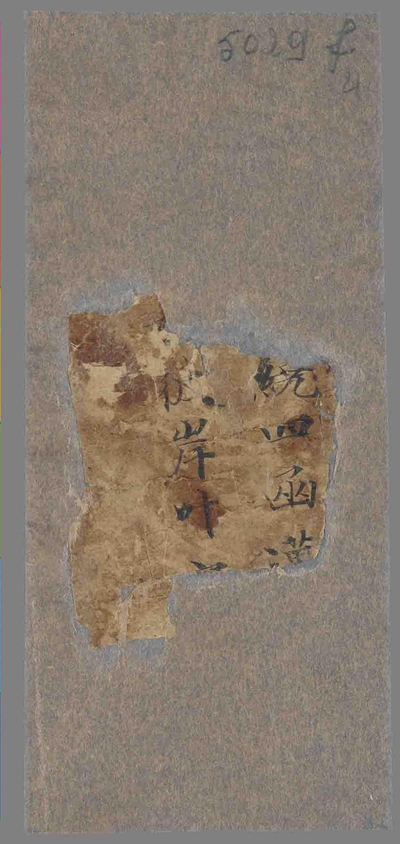 5029 f
4
統四函漢
岸叶